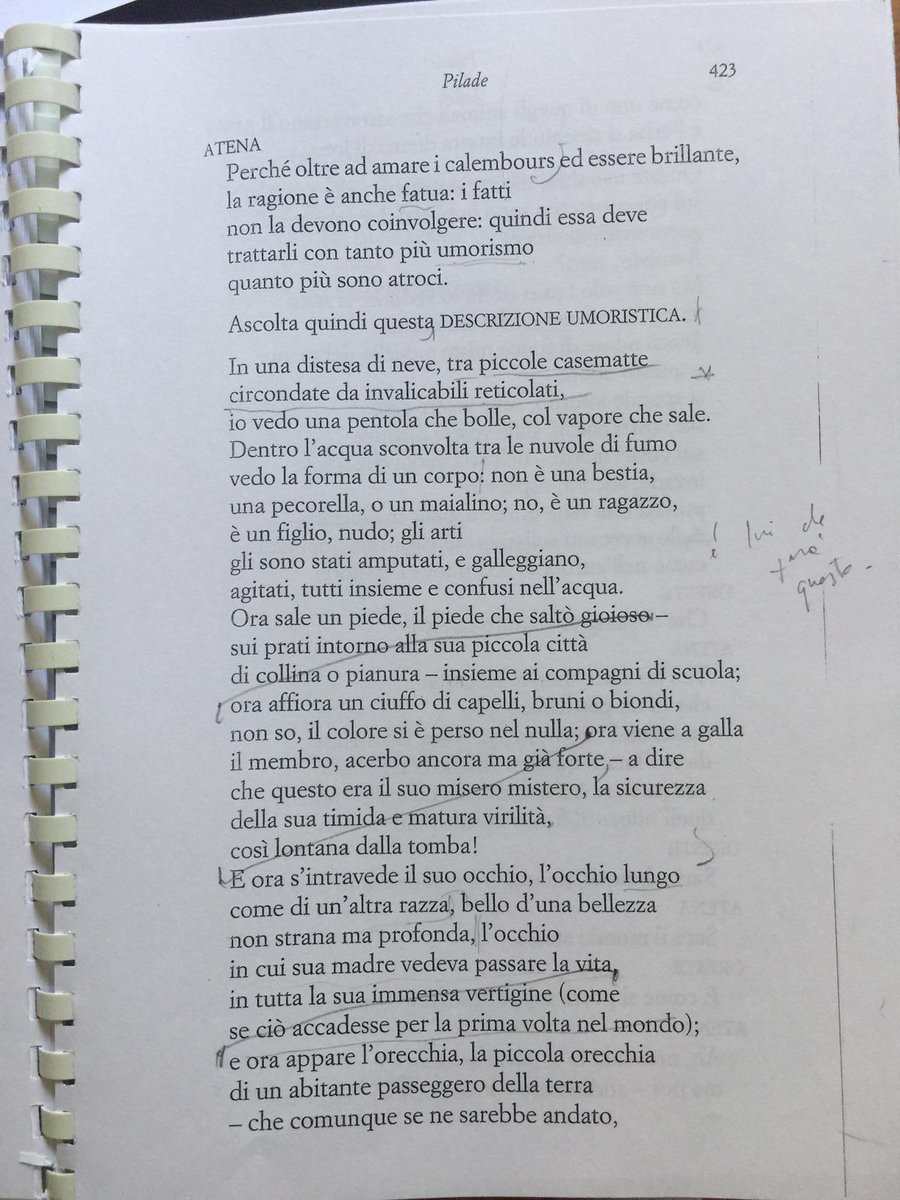 Pilade
423
ATENA
Perché oltre ad amare i calembours ed essere brillante,
la ragione è anche fatua: i fatti
non la devono coinvolgere: quindi essa deve
trattarli con tanto più umorismo
quanto più sono atroci.
Ascolta quindi questa DESCRIZIONE UMORISTICA.
In una distesa di neve, tra piccole casematte
circondate da invalicabili reticolati,
io vedo una pentola che bolle, col vapore che sale.
Dentro l'acqua sconvolta tra le nuvole di fumo
vedo la forma di un corpo: non è una bestia,
una pecorella, o un maialino; no, è un ragazzo,
è un figlio, nudo; gli arti
gli sono stati amputati, e galleggiano,
agitati, tutti insieme e confusi nell'acqua.
Ora sale un piede, il piede che saltò gioioso –
sui prati intorno alla sua piccola città
di collina o pianura – insieme ai compagni di scuola;
ora affiora un ciuffo di capelli, bruni o biondi,
non so, il colore si è perso nel nulla; ora viene a galla
il membro, acerbo ancora ma già forte, – a dire
che questo era il suo misero mistero, la sicurezza
della sua timida e matura virilità,
così lontana dalla tomba!
E ora s'intravede il suo occhio, l'occhio lungo
come di un'altra razza, bello d'una bellezza
non strana ma profonda, l'occhio
in cui sua madre vedeva passare la vita,
in tutta la sua immensa vertigine (come
se ciò accadesse per la prima volta nel mondo);
e ora appare l'orecchia, la piccola orecchia
di un abitante passeggero della terra
– che comunque se ne sarebbe andato,